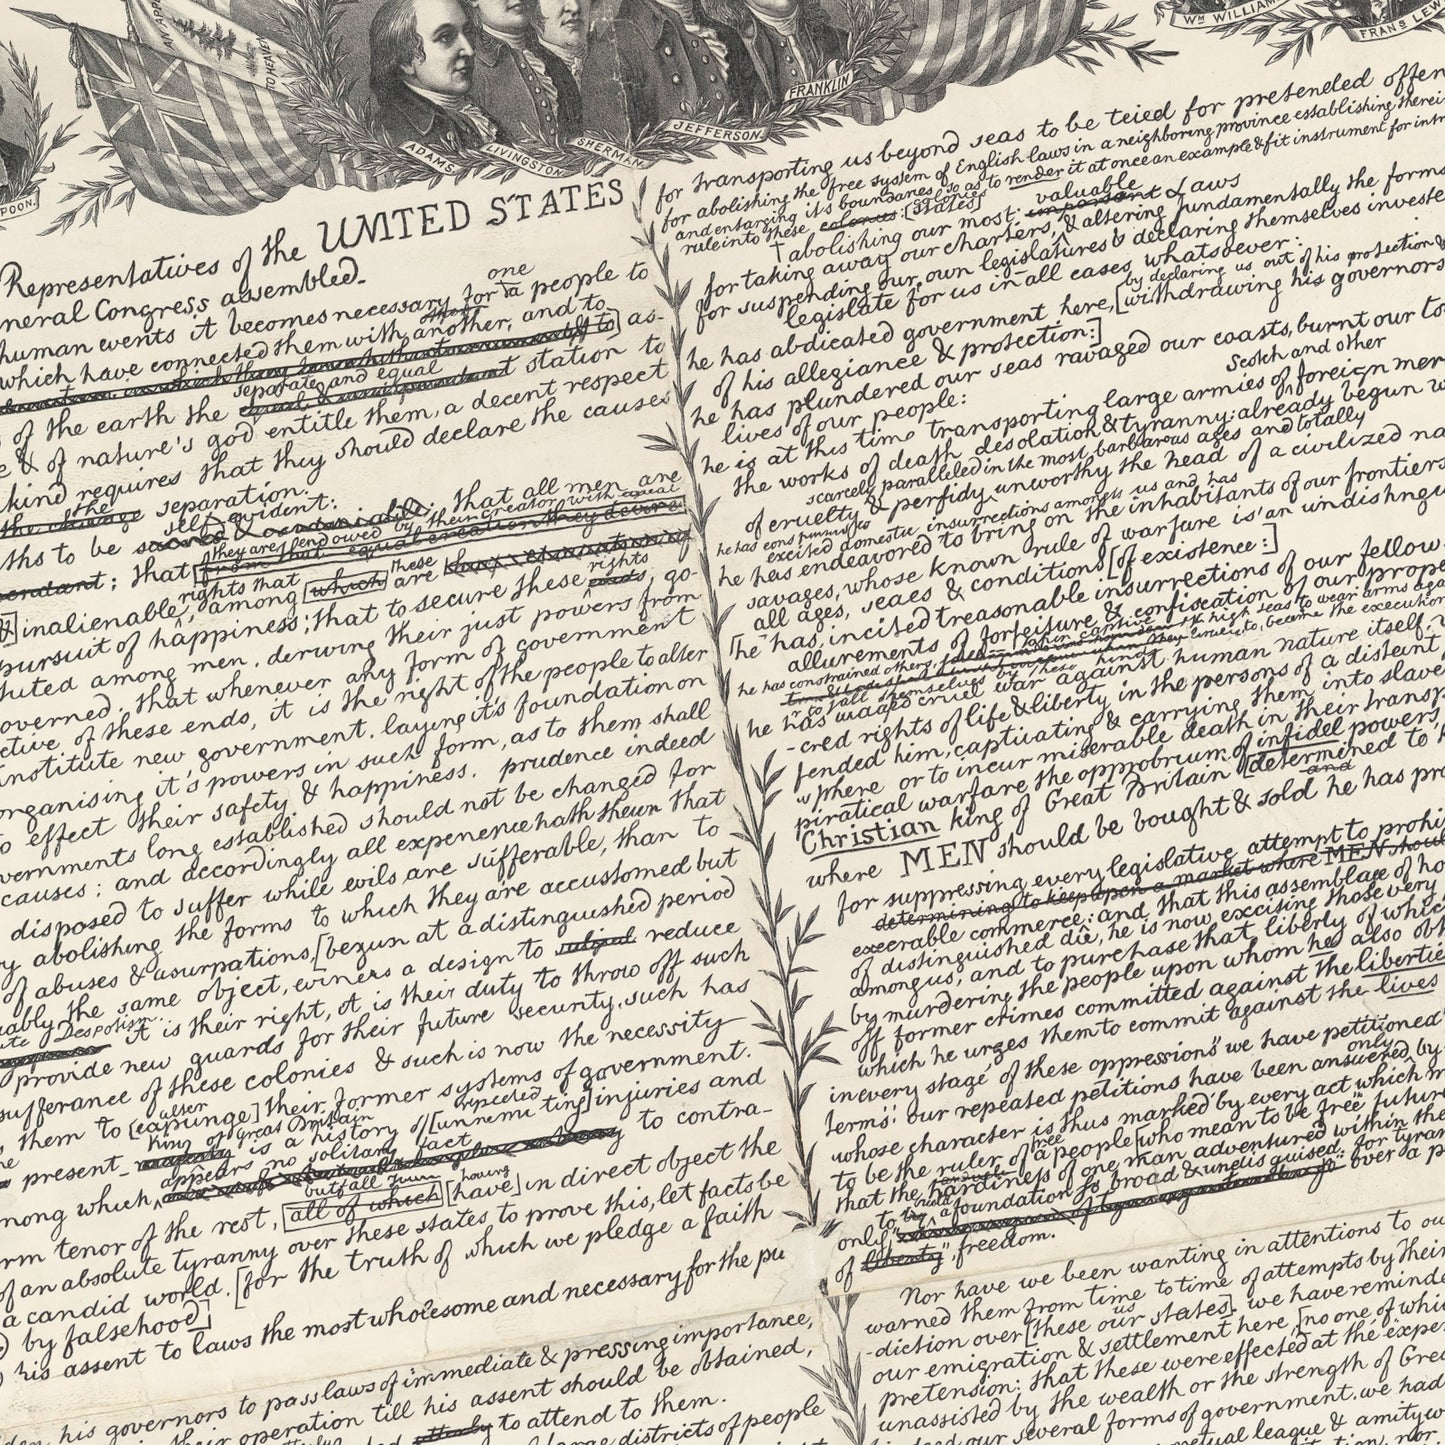 AN APP
TO HEAVEN
POON.
ADAMS.
LIVINGSTON.
SHERMAN.
JEFFERSON.
FRANKLIN
WM WILLIAM
FRANS LEW
Representatives of the UNITED STATES
neral Congress assembled.
human events it becomes necessary for a people to
one
which have connected them with another, and to
as-
separate and equal
of the earth the equal & independant station to
e & of nature's god entitle them, a decent respect
kind requires that they should declare the causes
the
the change separation.
self evident:
ths to be sacred & undeniable; that all men are
they are endowed by their creator with equal
pendant; that from that equal creation they derive
rights that these
&] inalienable, among [which] are
rights
pursuit of happiness; that to secure these ends, go-
tuted among men, deriving their just powers from
overned, that whenever any form of government
ctive of these ends, it is the right of the people to alter
institute new government, laying it's foundation on
organising it's powers in such form, as to them shall
o effect their safety & happiness. prudence indeed
vernments long established should not be changed for
causes: and accordingly all experience hath shewn that
disposed to suffer while evils are sufferable, than to
y abolishing the forms to which they are accustomed but
of abuses & usurpations, [begun at a distinguished period
uably the same object, evinces a design to subject reduce
ute Despotism it is their right, it is their duty to throw off such
provide new guards for their future security, such has
sufferance of these colonies & such is now the necessity
alter
them to [expunge] their former systems of government.
King of Great Britain repeated
present majesty is a history of [unremitting] injuries and
appears no solitary fact
mong which, to contra-
but all having
rm tenor of the rest, all of which [have] in direct object the
of an absolute tyranny over these states, to prove this, let facts be
a candid world. [for the truth of which we pledge a faith
by falsehood]
his assent to laws the most wholesome and necessary for the pu
his governors to pass laws of immediate & pressing importance,
their operation till his assent should be obtained,
utterly to attend to them.
large districts of people
for transporting us beyond seas to be tried for pretended offen
for abolishing the free system of English laws in a neighboring province establishing therein
and enlarging it's boundaries so as to render it at once an example & fit instrument for intr
rule into these colonies: [states]
valuable
abolishing our most important Laws
for taking away our charters, & altering fundamentally the forms
for suspending our own legislatures & declaring themselves investe
legislate for us in all cases whatsoever:
by declaring us out of his protection &
he has abdicated government here, [withdrawing his governors
of his allegiance & protection:]
he has plundered our seas ravaged our coasts, burnt our to
lives of our people:
Scotch and other
he is at this time transporting large armies of foreign mer
the works of death desolation & tyranny already begun w
scarcely paralleled in the most barbarous ages and totally
of cruelty & perfidy unworthy the head of a civilized na
excited domestic insurrections amongst us and has
he has endeavored to bring on the inhabitants of our frontiers
savages, whose known rule of warfare is an undistingu
all ages, sexes & conditions [of existence:]
[he has incited treasonable insurrections of our fellow
allurements of forfeiture & confiscation of our prope
he has constrained others, taken captive on the high seas to bear arms aga
to fall themselves by their hands
he has waged cruel war against human nature itself,
-cred rights of life & liberty in the persons of a distant
fended him, captivating & carrying them into slave
where or to incur miserable death in their transp
piratical warfare the opprobrium of infidel powers,
Christian king of Great Britain [determined to
and
where MEN should be bought & sold he has pro
for suppressing every legislative attempt to prohi
determining to keep open a market where MEN shoul
execrable commerce: and that this assemblage of ho
of distinguished die, he is now exciting those very
among us, and to purchase that liberty of which
by murdering the people upon whom he also ob
off former crimes committed against the liberties
which he urges them to commit against the lives
in every stage of these oppressions we have petitioned
only
terms; our repeated petitions have been answered by
whose character is thus marked by every act which m
free
to be the ruler of a people [who mean to be free, futur
that the hardiness of one man adventured within the
to a foundation so broad & undisguised for tyran
only over a p
of liberty" freedom.
Nor have we been wanting in attentions to ou
warned them from time to time of attempts by their
us
-diction over [these our states]. we have reminde
our emigration & settlement here [no one of whi
pretension: that these were effected at the expe
unassisted by the wealth or the strength of Grea
our several forms of government, we had
petual league & amity w